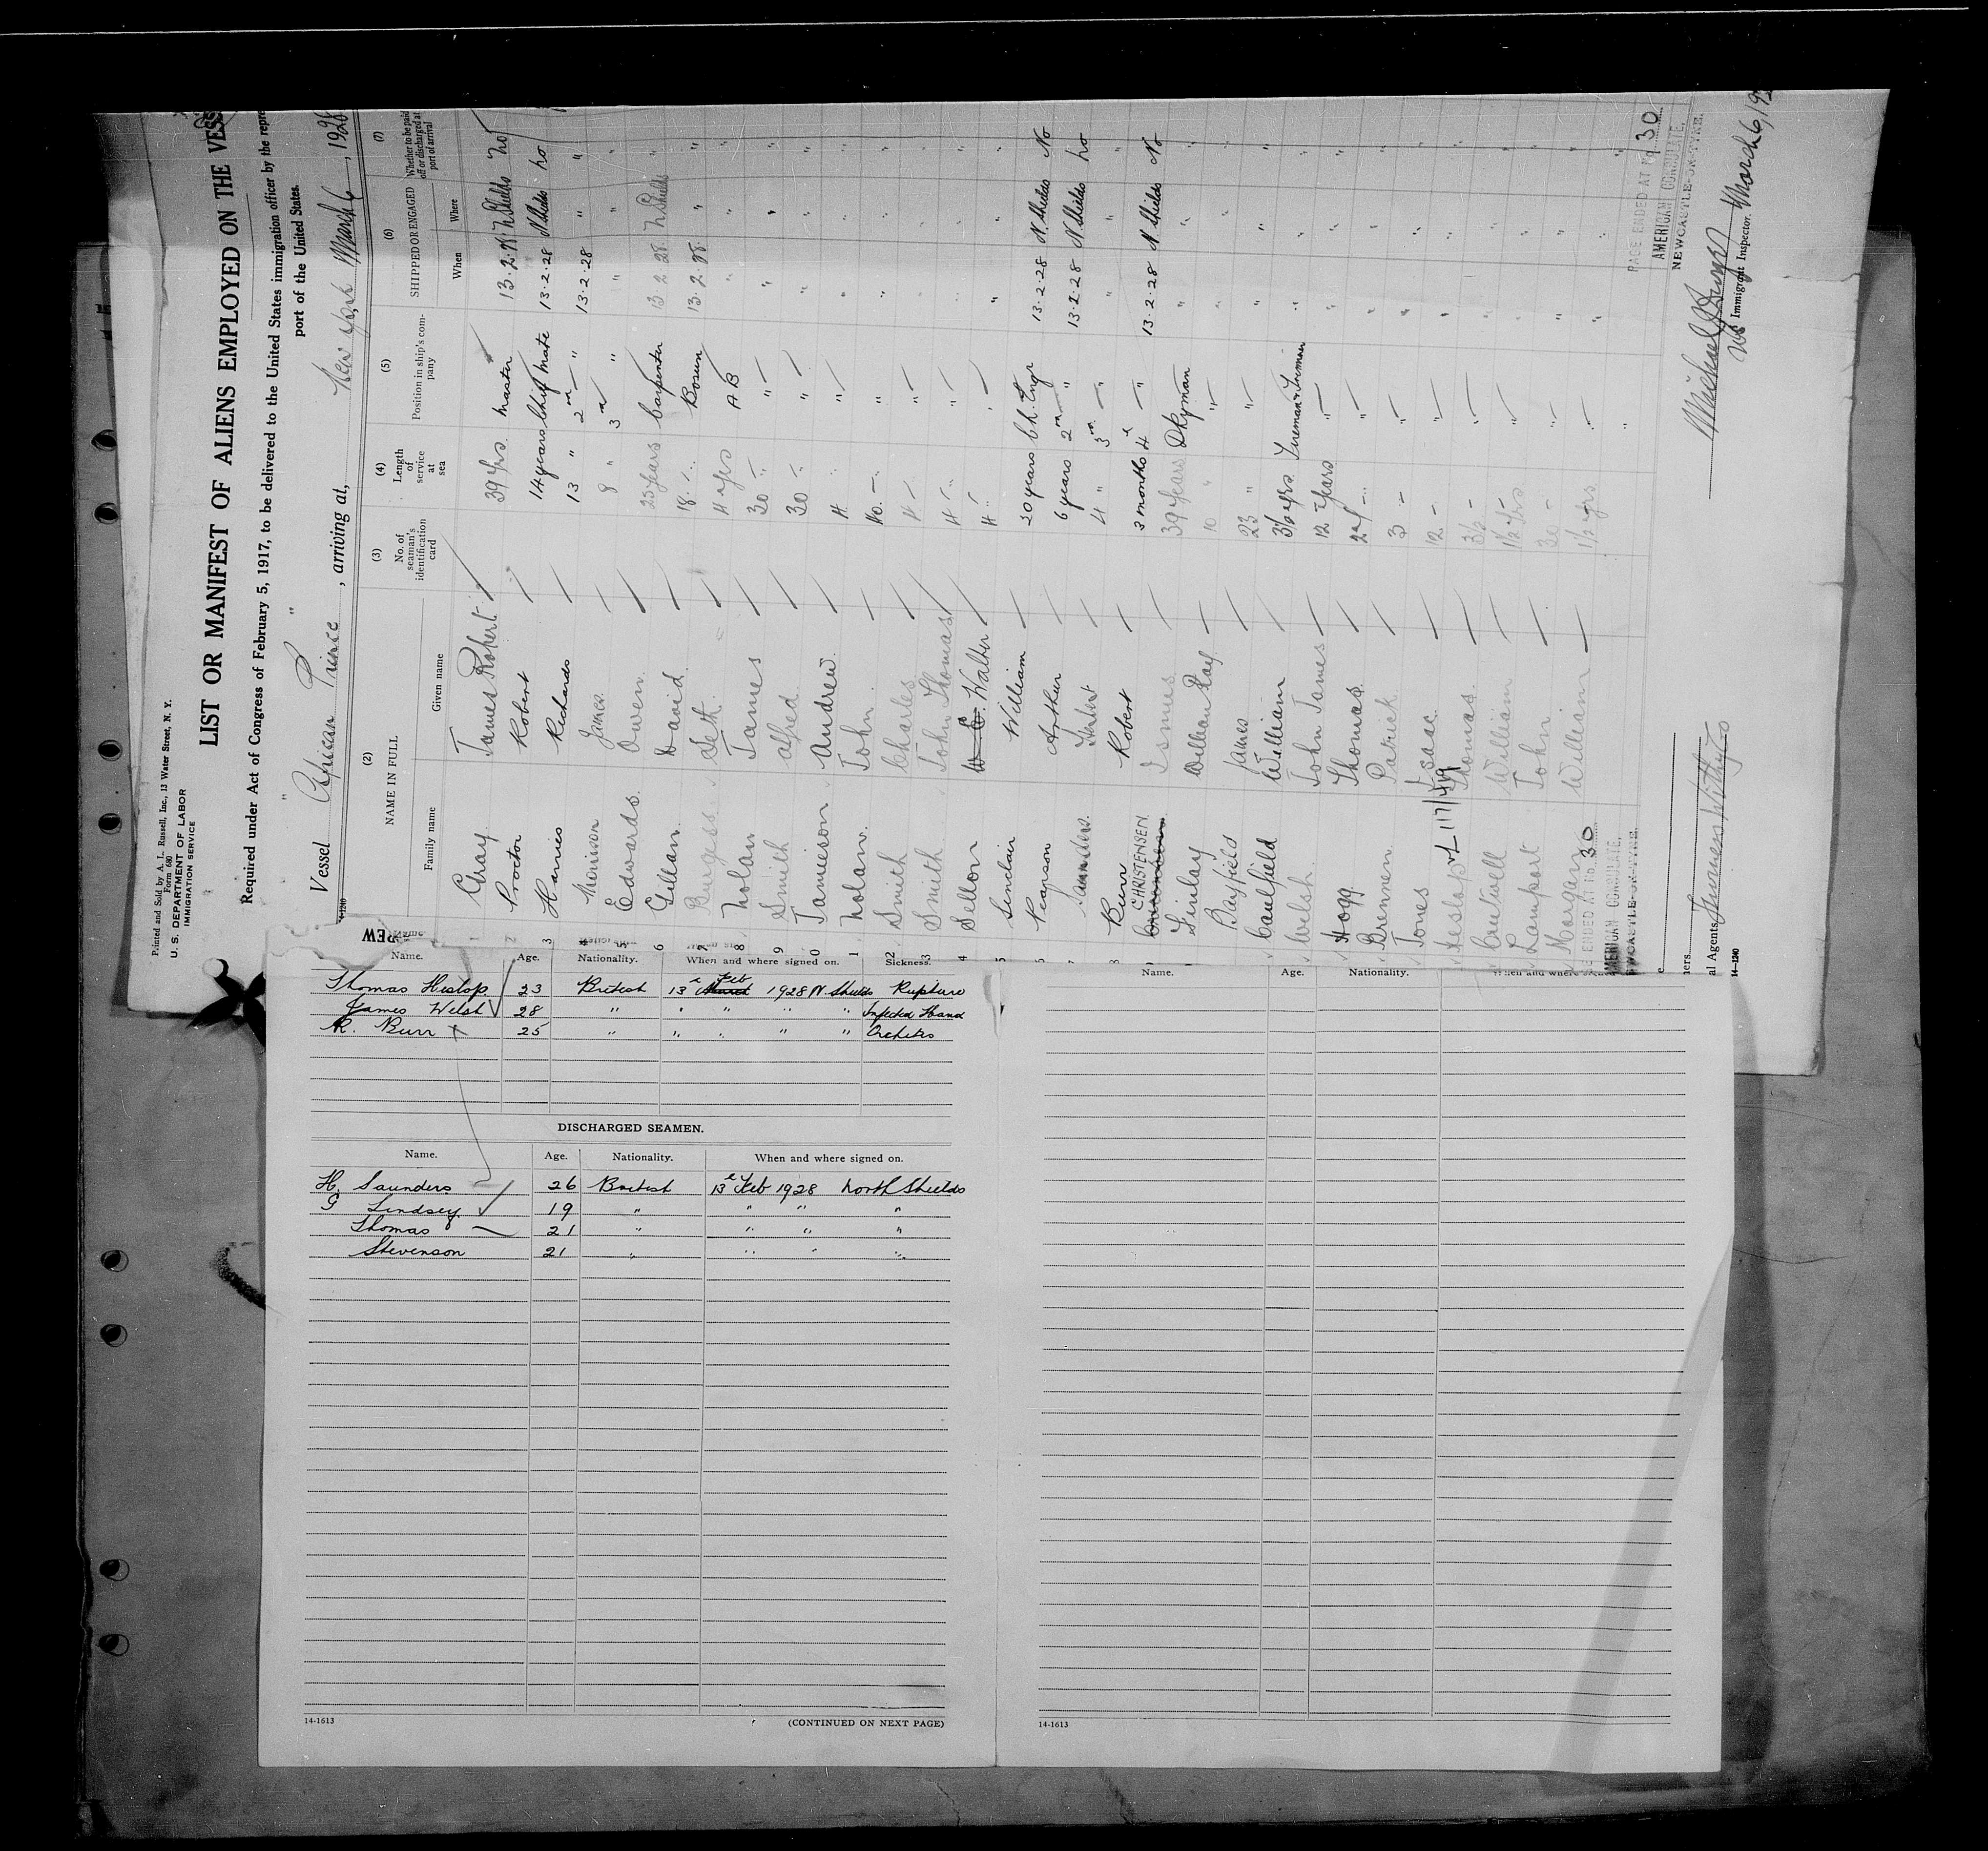 Printed and Sold by A. L. Russell, Inc., 13 Water Street, N. Y.
Form 680
U. S. DEPARTMENT OF LABOR
IMMIGRATION SERVICE
LIST OR MANIFEST OF ALIENS EMPLOYED ON THE VESS
Required under Act of Congress of February 5, 1917, to be delivered to the United States immigration officer by the repre
port of the United States.
Vessel African Prince, arriving at, New York March 6, 1928
(2) NAME IN FULL
Family name Given name
(3) No. of seaman's identification card
(4) Length of service at sea
(5) Position in ship's company
(6) SHIPPED OR ENGAGED
When Where
(7) Whether to be paid off or discharged at port of arrival
1 Gray James Robert 39 Yrs. Master 13.2.28 N Shields No
2 Proctor Robert 14 years Chief Mate 13.2.28 N Shields No
3 Harries Richards 13 " 2nd " 13.2.28 " "
4 Morrison James 8 " 3rd " " " "
5 Edwards. Owen 25 years Carpenter 13 2 28. N Shields "
6 Gillan. David. 18 Bosun 13.2.28. " "
7 Burgess Seth. 4 yrs A B " " "
8 Nolan James 30 " " " "
9 Smith Alfred 30 " " " "
10 Jamieson Andrew. 4 " " " "
11 Nolan. John 40 " " " "
12 Smith Charles 4 " " " "
13 Smith. John Thomas 4 " " " "
14 Sellon Walter 4 " " " "
Sinclair William 20 years Ch. Engr 13.2.28 N. Shields No
Pearson Arthur 6 years 2nd " 13.2.28 N Shields No
Saunders. 4 " 3rd " " " "
Burr Robert 3 months 4th " 13.2.28 N Shields No
CHRISTENSEN Ismus 39 years Dkyman " " "
Finlay William Ray 10 " " " " "
Bayfield James 23 " " " " "
Caulfield William 3½ yrs. Fireman & Trimmer " " "
Welsh John James 12 years " " " "
Hogg Thomas. " " " "
Brennen Patrick 3 " " " "
Jones Isaac 12 " " " "
Heslop Thomas. 3½ " " " "
William 1½ yrs " " " "
Lamport John " " " "
Morgan William 1½ yrs " " " "
PAGE ENDED AT No. 30
AMERICAN CONSULATE,
NEWCASTLE-ON-TYNE.
ENDED AT No. 30
AMERICAN CONSULATE,
Immigrant Inspector. March 6, 192
al Agents, Furness Withy & Co
14-1240
Name. Age. Nationality. When and where signed on. Sickness.
Thomas Heslop 23 British 13th Feb 1928 N. Shields Rupture
James Welsh 28 " " " " " Infected Hand
R. Burr 25 " " " " " Orchitis
DISCHARGED SEAMEN.
Name. Age. Nationality. When and where signed on.
H. Saunders 26 British 13th Feb 1928 North Shields
G Lindsey 19 " " " "
Thomas 21 " " " "
Stevenson 21 " " " "
14-1613
(CONTINUED ON NEXT PAGE)
Name. Age. Nationality. When and where
14-1613